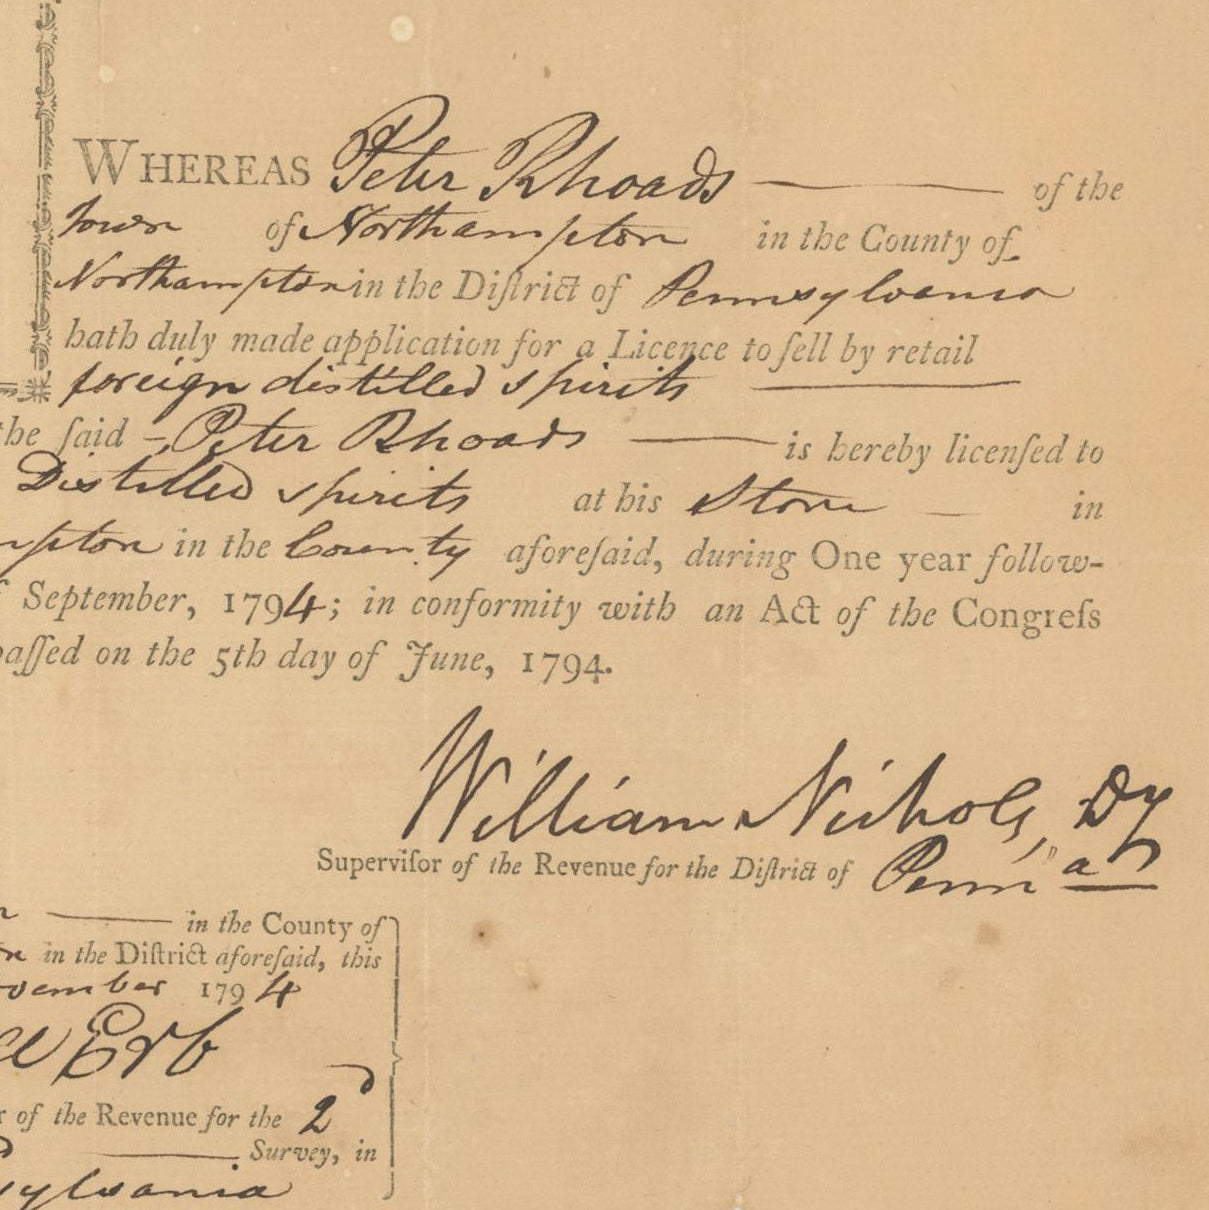 WHEREAS Peter Rhoads of the
Town of Northampton in the County of
Northampton in the Diſtrict of Pennsylvania
hath duly made application for a Licence to ſell by retail
foreign distilled spirits
the ſaid Peter Rhoads is hereby licenſed to
Distilled spirits at his Store in
mpton in the County aforeſaid, during One year follow-
f September, 1794; in conformity with an Act of the Congreſs
paſſed on the 5th day of June, 1794.
William Nichols, Dy
Superviſor of the Revenue for the Diſtrict of Penn'a
n in the County of
n in the Diſtrict aforeſaid, this
ovember 1794
Erb
r of the Revenue for the 2d
Survey, in
sylvania